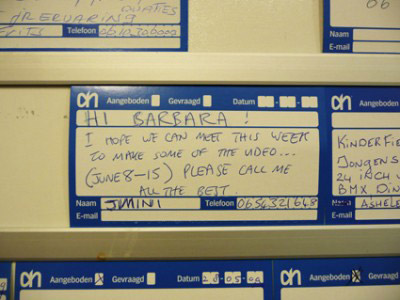 DIENSTEN
ERVARING
Telefoon
Naam
E-mail
ah Aangeboden Gevraagd Datum
HI BARBARA !
I HOPE WE CAN MEET THIS WEEK
TO MAKE SOME OF THE VIDEO...
(JUNE 8-15) PLEASE CALL ME
ALL THE BEST.
Naam JIMINI Telefoon 0654321648
E-mail
KINDERFIE
JONGENS
24 INCH
BMX DIN
Naam ASHELE
E-mail
ah Aangeboden Gevraagd Datum
ah Aangeboden Gevraagd